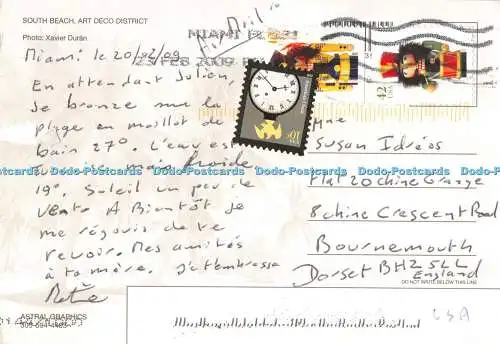 SOUTH BEACH, ART DECO DISTRICT
Photo: Xavier Durán
Air Mail
MIAMI FL 331
23 FEB 2009
Miami le 20/02/09
En attendant Julien,
Je bronze sur la
plage en maillot de
bain 27°. L'eau est
mais froide
19°. Soleil un peu de
vent. A Bientôt Je
me réjouis de te
revoir. Mes amitiés
à ta mère. J't'embrasse
42
USA
10¢
Mme
Susan Idréos
Flat 20 Chine Grange
8 Chine Crescent Road
Bournemouth
Dorset BH2 5LL
England
DO NOT WRITE BELOW THIS LINE
ASTRAL GRAPHICS
Dodo-Postcards Dodo-Postcards Dodo-Postcards Dodo-Postcards